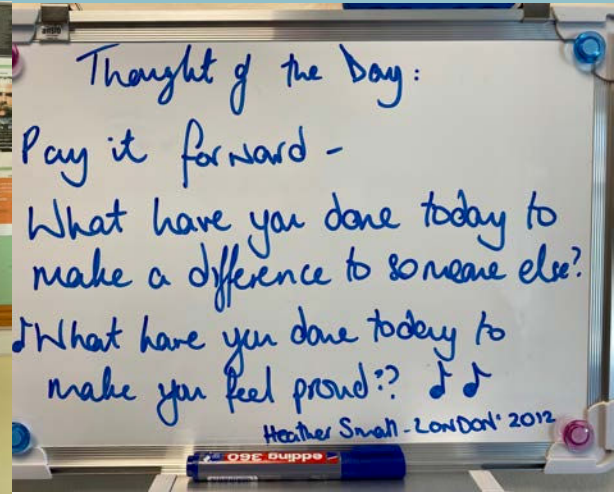 Thought of the Day:
Pay it forward -
What have you done today to
make a difference to someone else?
♪What have you done today to
make you feel proud?? ♪♪
Heather Small - LONDON' 2012
edding 360